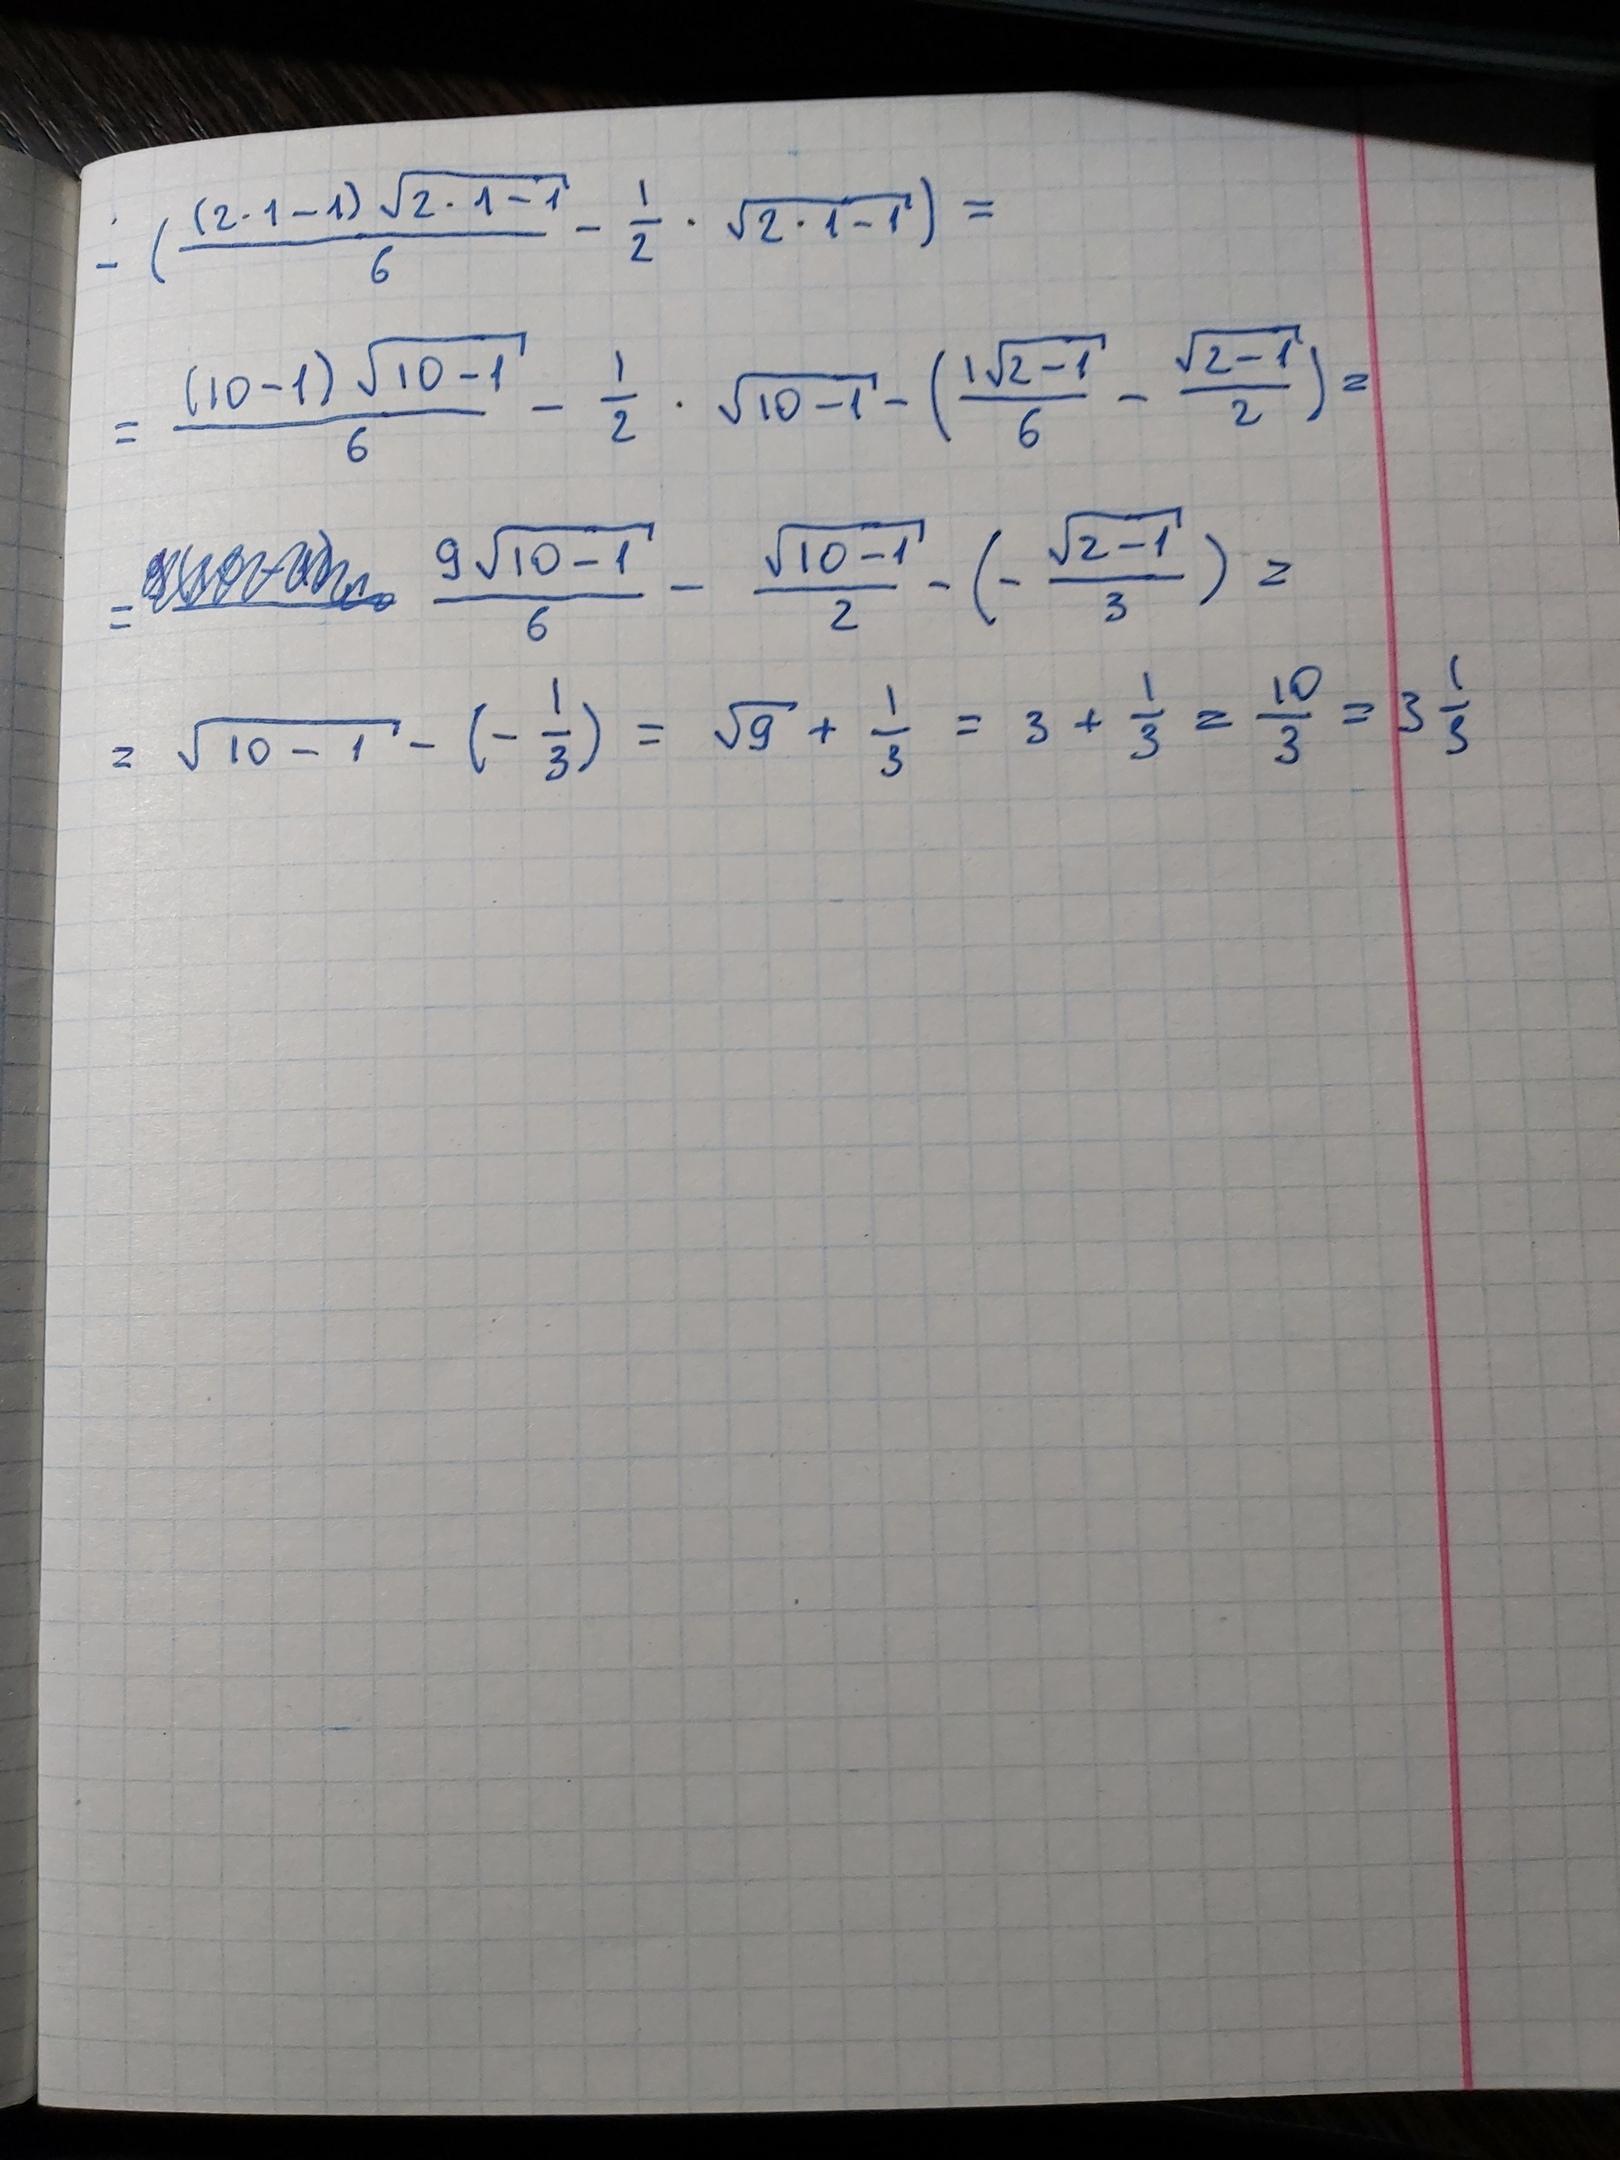 - ( (2·1-1)√(2·1-1) / 6 - 1/2 · √(2·1-1) ) =
= (10-1)√(10-1) / 6 - 1/2 · √(10-1) - ( 1√(2-1) / 6 - √(2-1) / 2 ) =
= 9√(10-1) / 6 - √(10-1) / 2 - ( - √(2-1) / 3 ) =
= √(10-1) - ( - 1/3 ) = √9 + 1/3 = 3 + 1/3 = 10/3 = 3 1/3